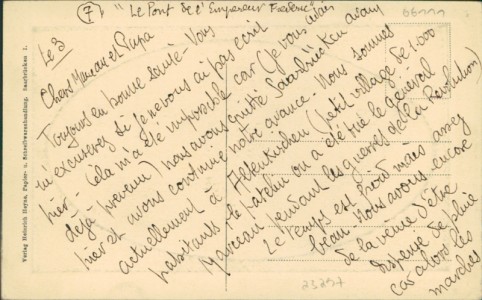 ⑦ "Le Pont de l'Empereur Frédéric"
Le 3
Chers Maman et Papa
Toujours en bonne santé - Vous
m'excuserez si je ne vous ai pas écrit
hier - Cela m'a été impossible car (je vous avais
déjà prévenu) nous avons quitté Saarbrücken avant
hier et avons continué notre avance - Nous sommes
actuellement à Altenkirchen (petit village de 1.000
habitants - le patelin où a été tué le général
Marceau pendant les guerres de la Révolution)
Le temps est froid mais assez
beau - Nous avons encore
de la veine d'être
dispensé de pluie
car alors les
marches
Verlag Heinrich Heyne, Papier- u. Schreibwarenhandlung, Saarbrücken 1.
23297